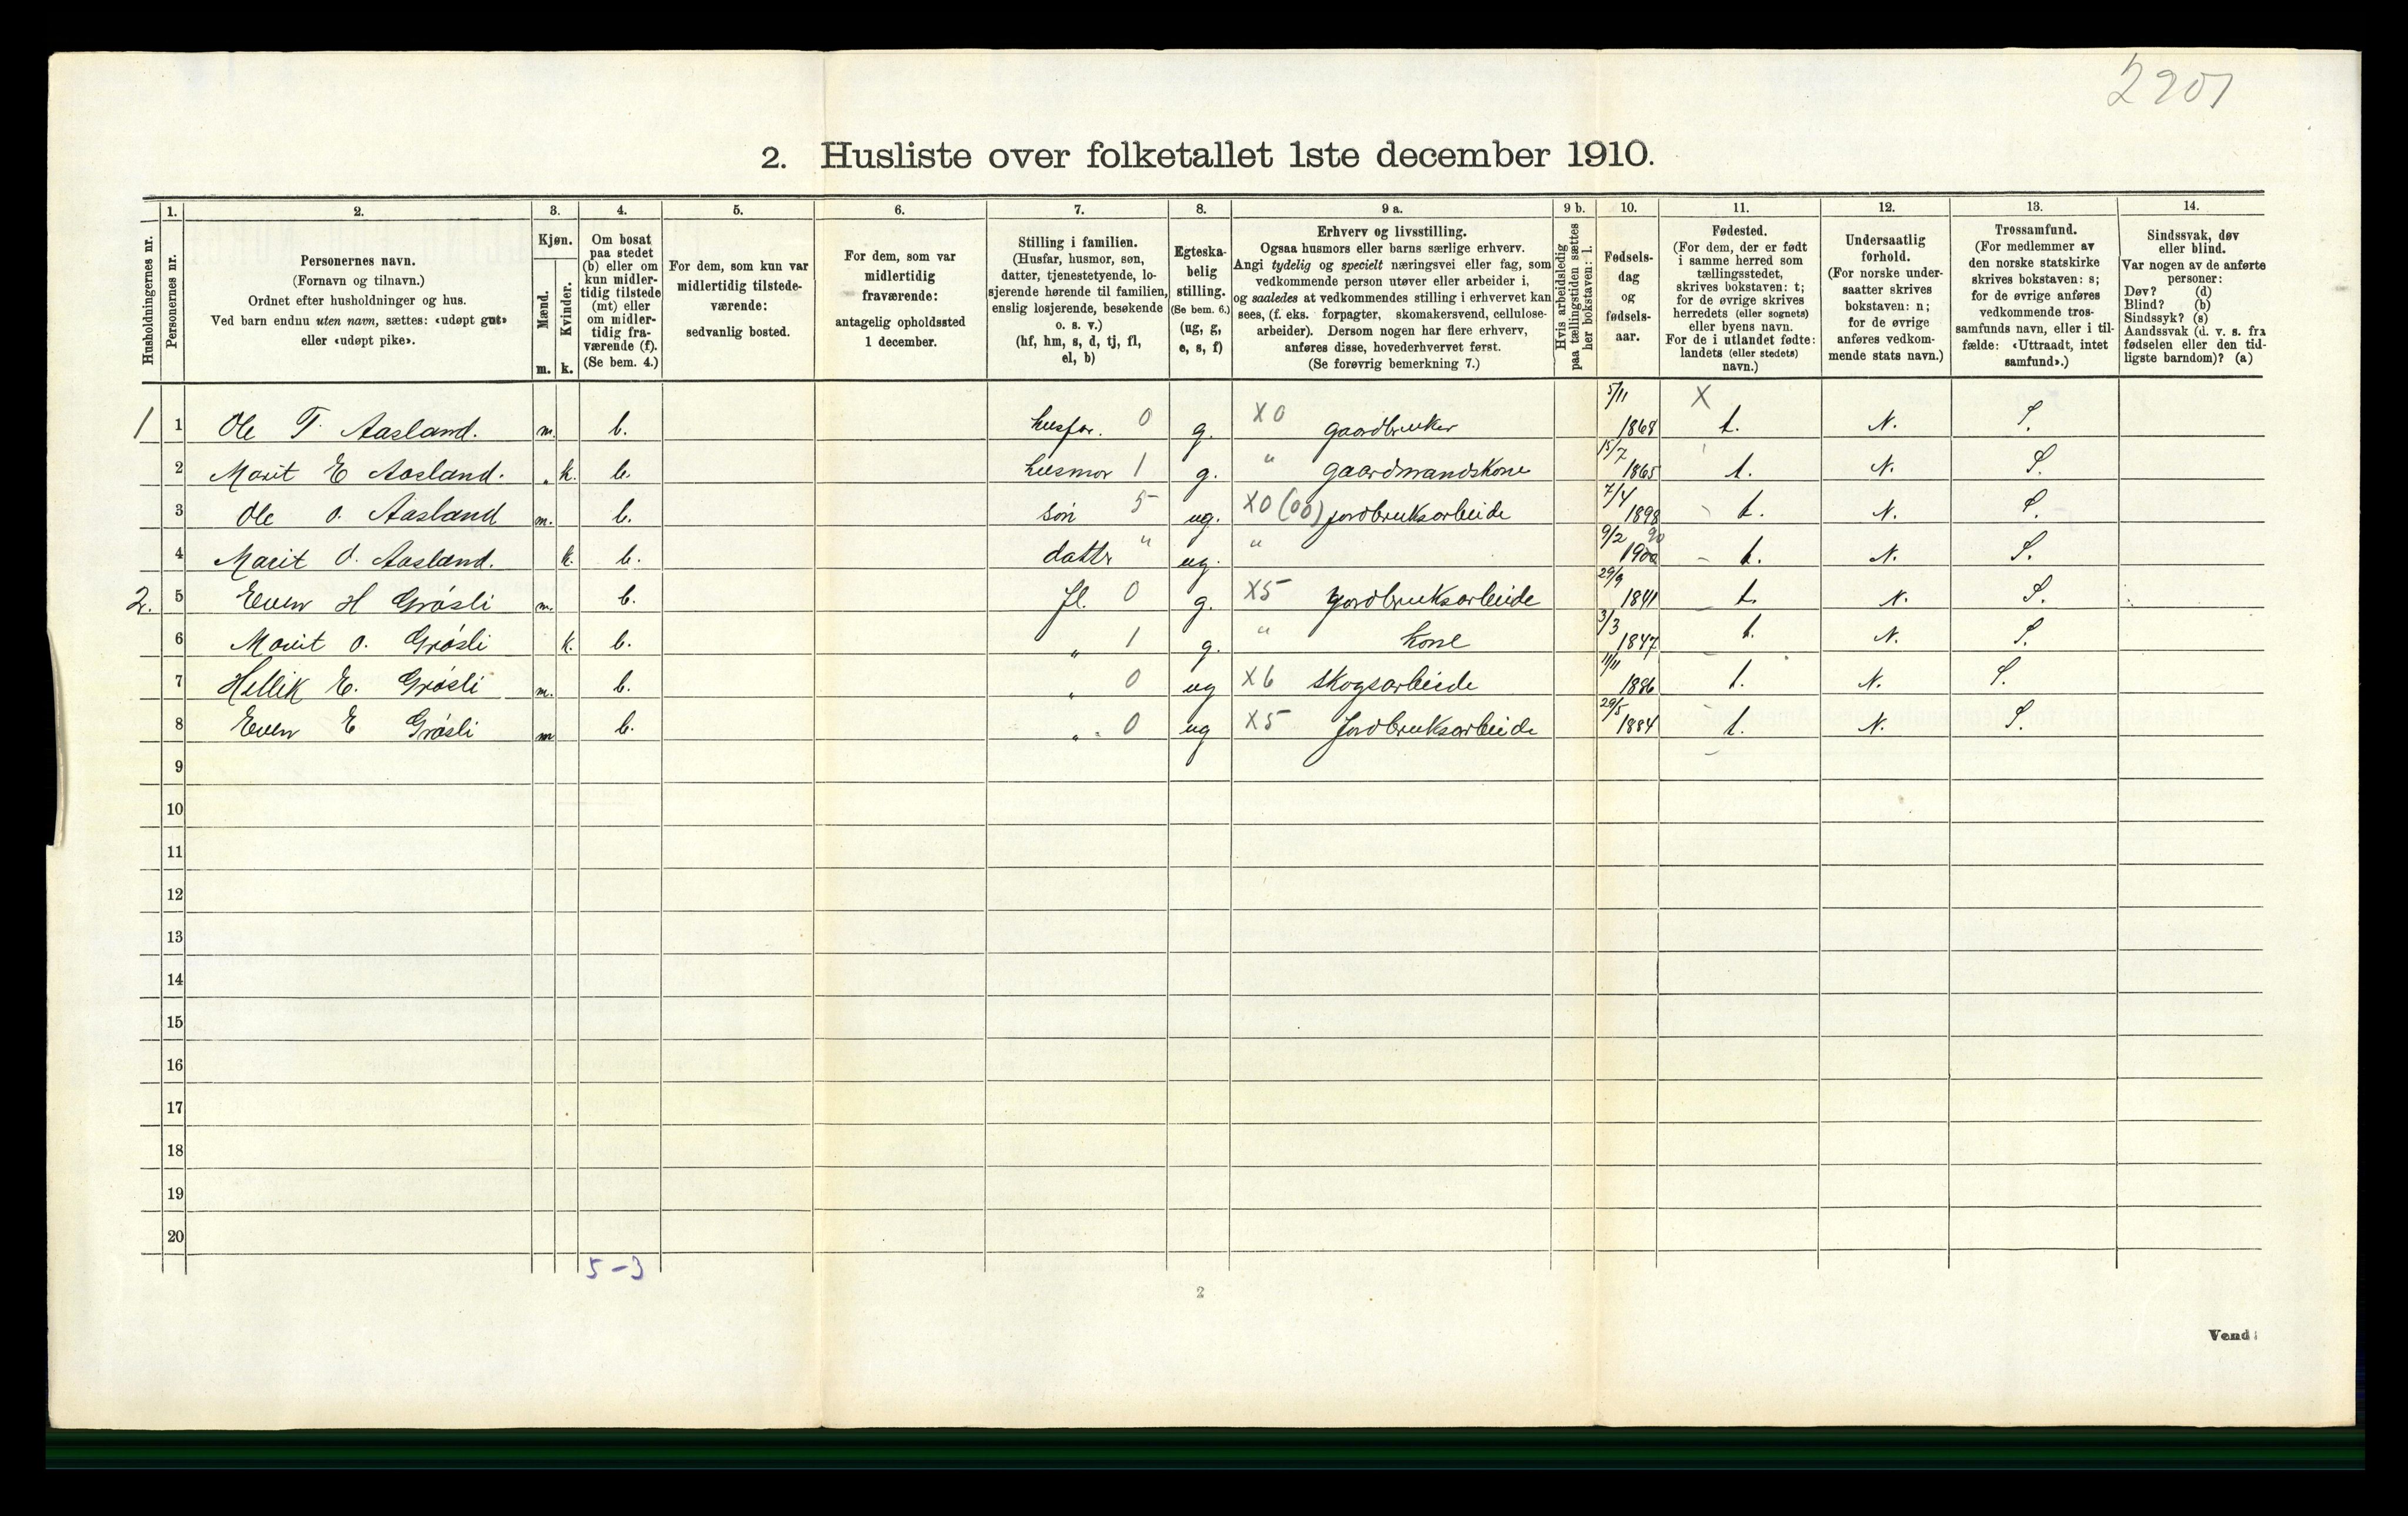 2201
2. Husliste over folketallet 1ste december 1910.
Husholdningernes nr.
1. Personernes nr.
2. Personernes navn.
(Fornavn og tilnavn.)
Ordnet efter husholdninger og hus.
Ved barn endnu uten navn, sættes: «udøpt gut»
eller «udøpt pike».
3. Kjøn.
Mænd. m.
Kvinder. k.
4. Om bosat
paa stedet
(b) eller om
kun midler-
tidig tilstede
(mt) eller
om midler-
tidig fra-
værende (f).
(Se bem. 4.)
5. For dem, som kun var
midlertidig tilstede-
værende:
sedvanlig bosted.
6. For dem, som var
midlertidig
fraværende:
antagelig opholdssted
1 december.
7. Stilling i familien.
(Husfar, husmor, søn,
datter, tjenestetyende, lo-
sjerende hørende til familien,
enslig losjerende, besøkende
o. s. v.)
(hf, hm, s, d, tj, fl,
el, b)
8. Egteska-
belig
stilling.
(Se bem. 6.)
(ug, g,
e, s, f)
9 a. Erhverv og livsstilling.
Ogsaa husmors eller barns særlige erhverv.
Angi tydelig og specielt næringsvei eller fag, som
vedkommende person utøver eller arbeider i,
og saaledes at vedkommendes stilling i erhvervet kan
sees, (f. eks. forpagter, skomakersvend, cellulose-
arbeider). Dersom nogen har flere erhverv,
anføres disse, hovederhvervet først.
(Se forøvrig bemerkning 7.)
9 b. Hvis arbeidsledig
paa tællingstiden sættes
her bokstaven: l.
10. Fødsels-
dag
og
fødsels-
aar.
11. Fødested.
(For dem, der er født
i samme herred som
tællingsstedet,
skrives bokstaven: t;
for de øvrige skrives
herredets (eller sognets)
eller byens navn.
For de i utlandet fødte:
landets (eller stedets)
navn.)
12. Undersaatlig
forhold.
(For norske under-
saatter skrives
bokstaven: n;
for de øvrige
anføres vedkom-
mende stats navn.)
13. Trossamfund.
(For medlemmer av
den norske statskirke
skrives bokstaven: s;
for de øvrige anføres
vedkommende tros-
samfunds navn, eller i til-
fælde: «Uttraadt, intet
samfund».)
14. Sindssvak, døv
eller blind.
Var nogen av de anførte
personer:
Døv? (d)
Blind? (b)
Sindssyk? (s)
Aandssvak (d. v. s. fra
fødselen eller den tid-
ligste barndom)? (a)
1 1 Ole T. Aasland. m. b. husfar. 0 g. X0 gaardbruker 5/11 1868 X t. N. S.
2 Marit E Aasland. " k. b. husmor 1 g. " gaardmandskone 15/7 1865 t. N. S.
3 Ole O. Aasland m. b. søn 5 ug. X0 (00) jordbruksarbeide 7/4 1898 t. N. S.
4 Marit O. Aasland. k. b. datter " ug. " 9/2 1900 90 t. N. S.
2. 5 Even H Grøsli m. b. fl. 0 g. X5 Jordbruksarbeide 29/9 1841 t. N. S.
6 Marit O. Grøsli k. b. " 1 g. " Kone 3/3 1847 t. N. S.
7 Hellik E. Grøsli m. b. " 0 ug X6 skogsarbeide 11/11 1886 t. N. S.
8 Even E Grøsli m b. " 0 ug X5 Jordbruksarbeide 29/5 1884 t. N. S.
9
10
11
12
13
14
15
16
17
18
19
20
5-3
2
Vend!